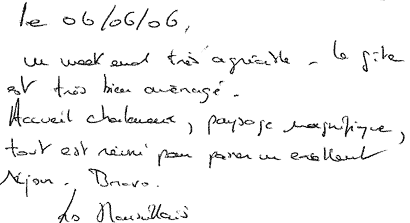 le 06/06/06,
un week end très agréable - le gîte
est très bien aménagé.
Accueil chaleureux, paysage magnifique,
tout est réuni pour passer un excellent
séjour. Bravo.
Les Marseillais